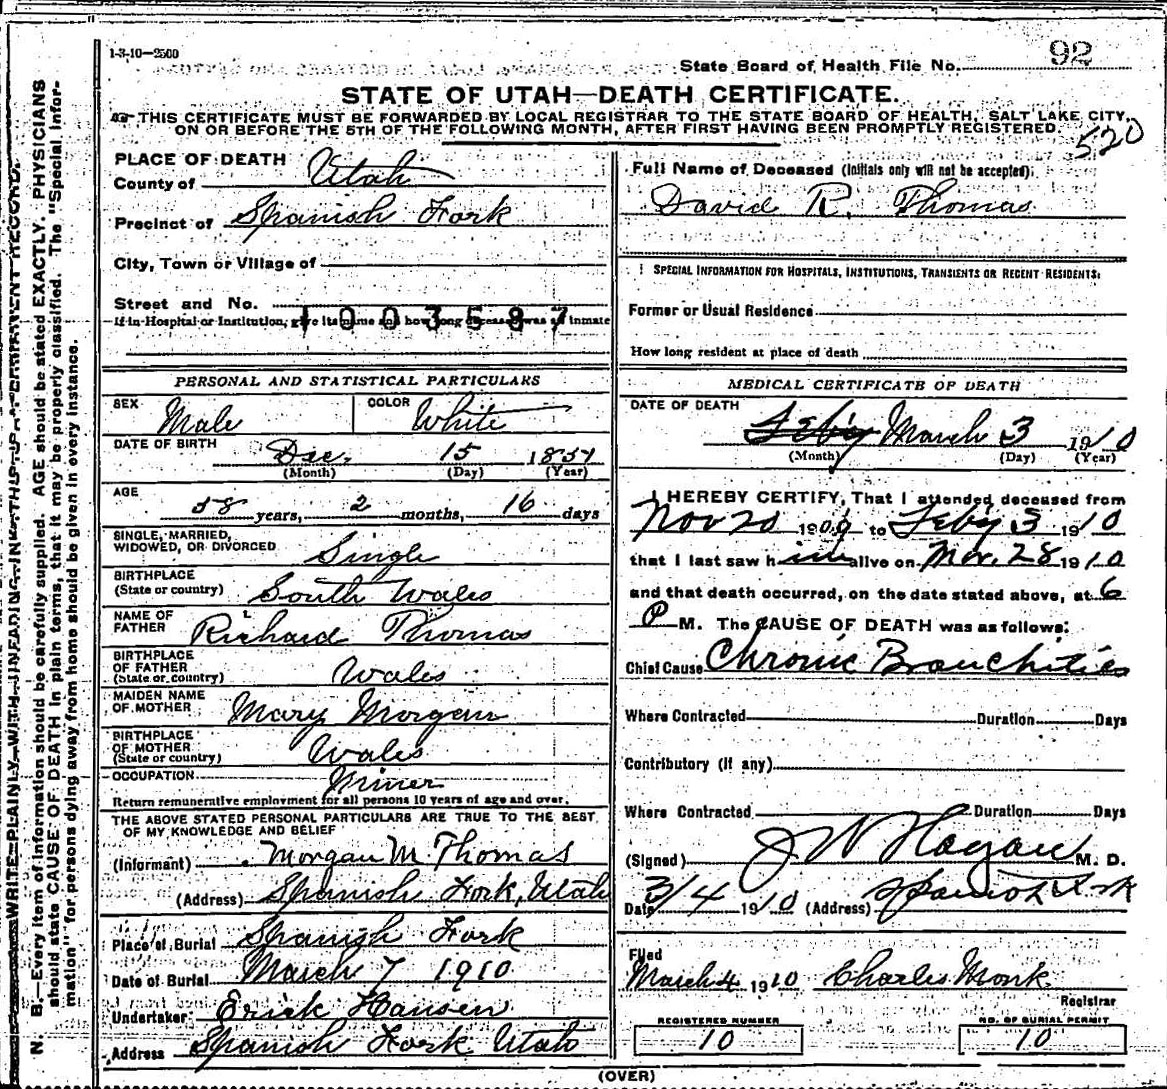 1-3-10—2500
State Board of Health File No. 92
STATE OF UTAH—DEATH CERTIFICATE.
THIS CERTIFICATE MUST BE FORWARDED BY LOCAL REGISTRAR TO THE STATE BOARD OF HEALTH, SALT LAKE CITY,
ON OR BEFORE THE 5TH OF THE FOLLOWING MONTH, AFTER FIRST HAVING BEEN PROMPTLY REGISTERED.
520
PLACE OF DEATH
County of Utah
Precinct of Spanish Fork
City, Town or Village of
Street and No.
If in Hospital or Institution, give its name and how long deceased was an inmate
1003587
Full Name of Deceased (Initials only will not be accepted);
David R. Thomas
SPECIAL INFORMATION FOR HOSPITALS, INSTITUTIONS, TRANSIENTS OR RECENT RESIDENTS:
Former or Usual Residence
How long resident at place of death
PERSONAL AND STATISTICAL PARTICULARS
SEX Male COLOR White
DATE OF BIRTH
Dec. 15 1851
(Month) (Day) (Year)
AGE
58 years, 2 months, 16 days
SINGLE, MARRIED,
WIDOWED, OR DIVORCED Single
BIRTHPLACE
(State or country) South Wales
NAME OF
FATHER Richard Thomas
BIRTHPLACE
OF FATHER
(State or country) Wales
MAIDEN NAME
OF MOTHER Mary Morgan
BIRTHPLACE
OF MOTHER
(State or country) Wales
OCCUPATION Miner
Return remunerative employment for all persons 10 years of age and over.
THE ABOVE STATED PERSONAL PARTICULARS ARE TRUE TO THE BEST
OF MY KNOWLEDGE AND BELIEF
(Informant) Morgan M. Thomas
(Address) Spanish Fork, Utah
Place of Burial Spanish Fork
Date of Burial March 7 1910
Undertaker Erick Hansen
Address Spanish Fork Utah
MEDICAL CERTIFICATE OF DEATH
DATE OF DEATH
Feby March 3 1910
(Month) (Day) (Year)
I HEREBY CERTIFY, That I attended deceased from
Nov 20 1909 to Feby 3 1910
that I last saw him alive on Nov. 28 1910
and that death occurred, on the date stated above, at 6
P M. The CAUSE OF DEATH was as follows:
Chief Cause Chronic Branchities
Where Contracted Duration Days
Contributory (if any)
Where Contracted Duration Days
(Signed) J W Hagan M. D.
Date 3/4 1910 (Address) Spanish Fork
Filed
March 4 1910 Charles Monk
Registrar
REGISTERED NUMBER
10
NO. OF BURIAL PERMIT
10
(OVER)
WRITE PLAINLY WITH UNFADING INK—THIS IS A PERMANENT RECORD.
N. B.—Every item of information should be carefully supplied. AGE should be stated EXACTLY. PHYSICIANS
should state CAUSE OF DEATH in plain terms, that it may be properly classified. The "Special Infor-
mation" for persons dying away from home should be given in every instance.